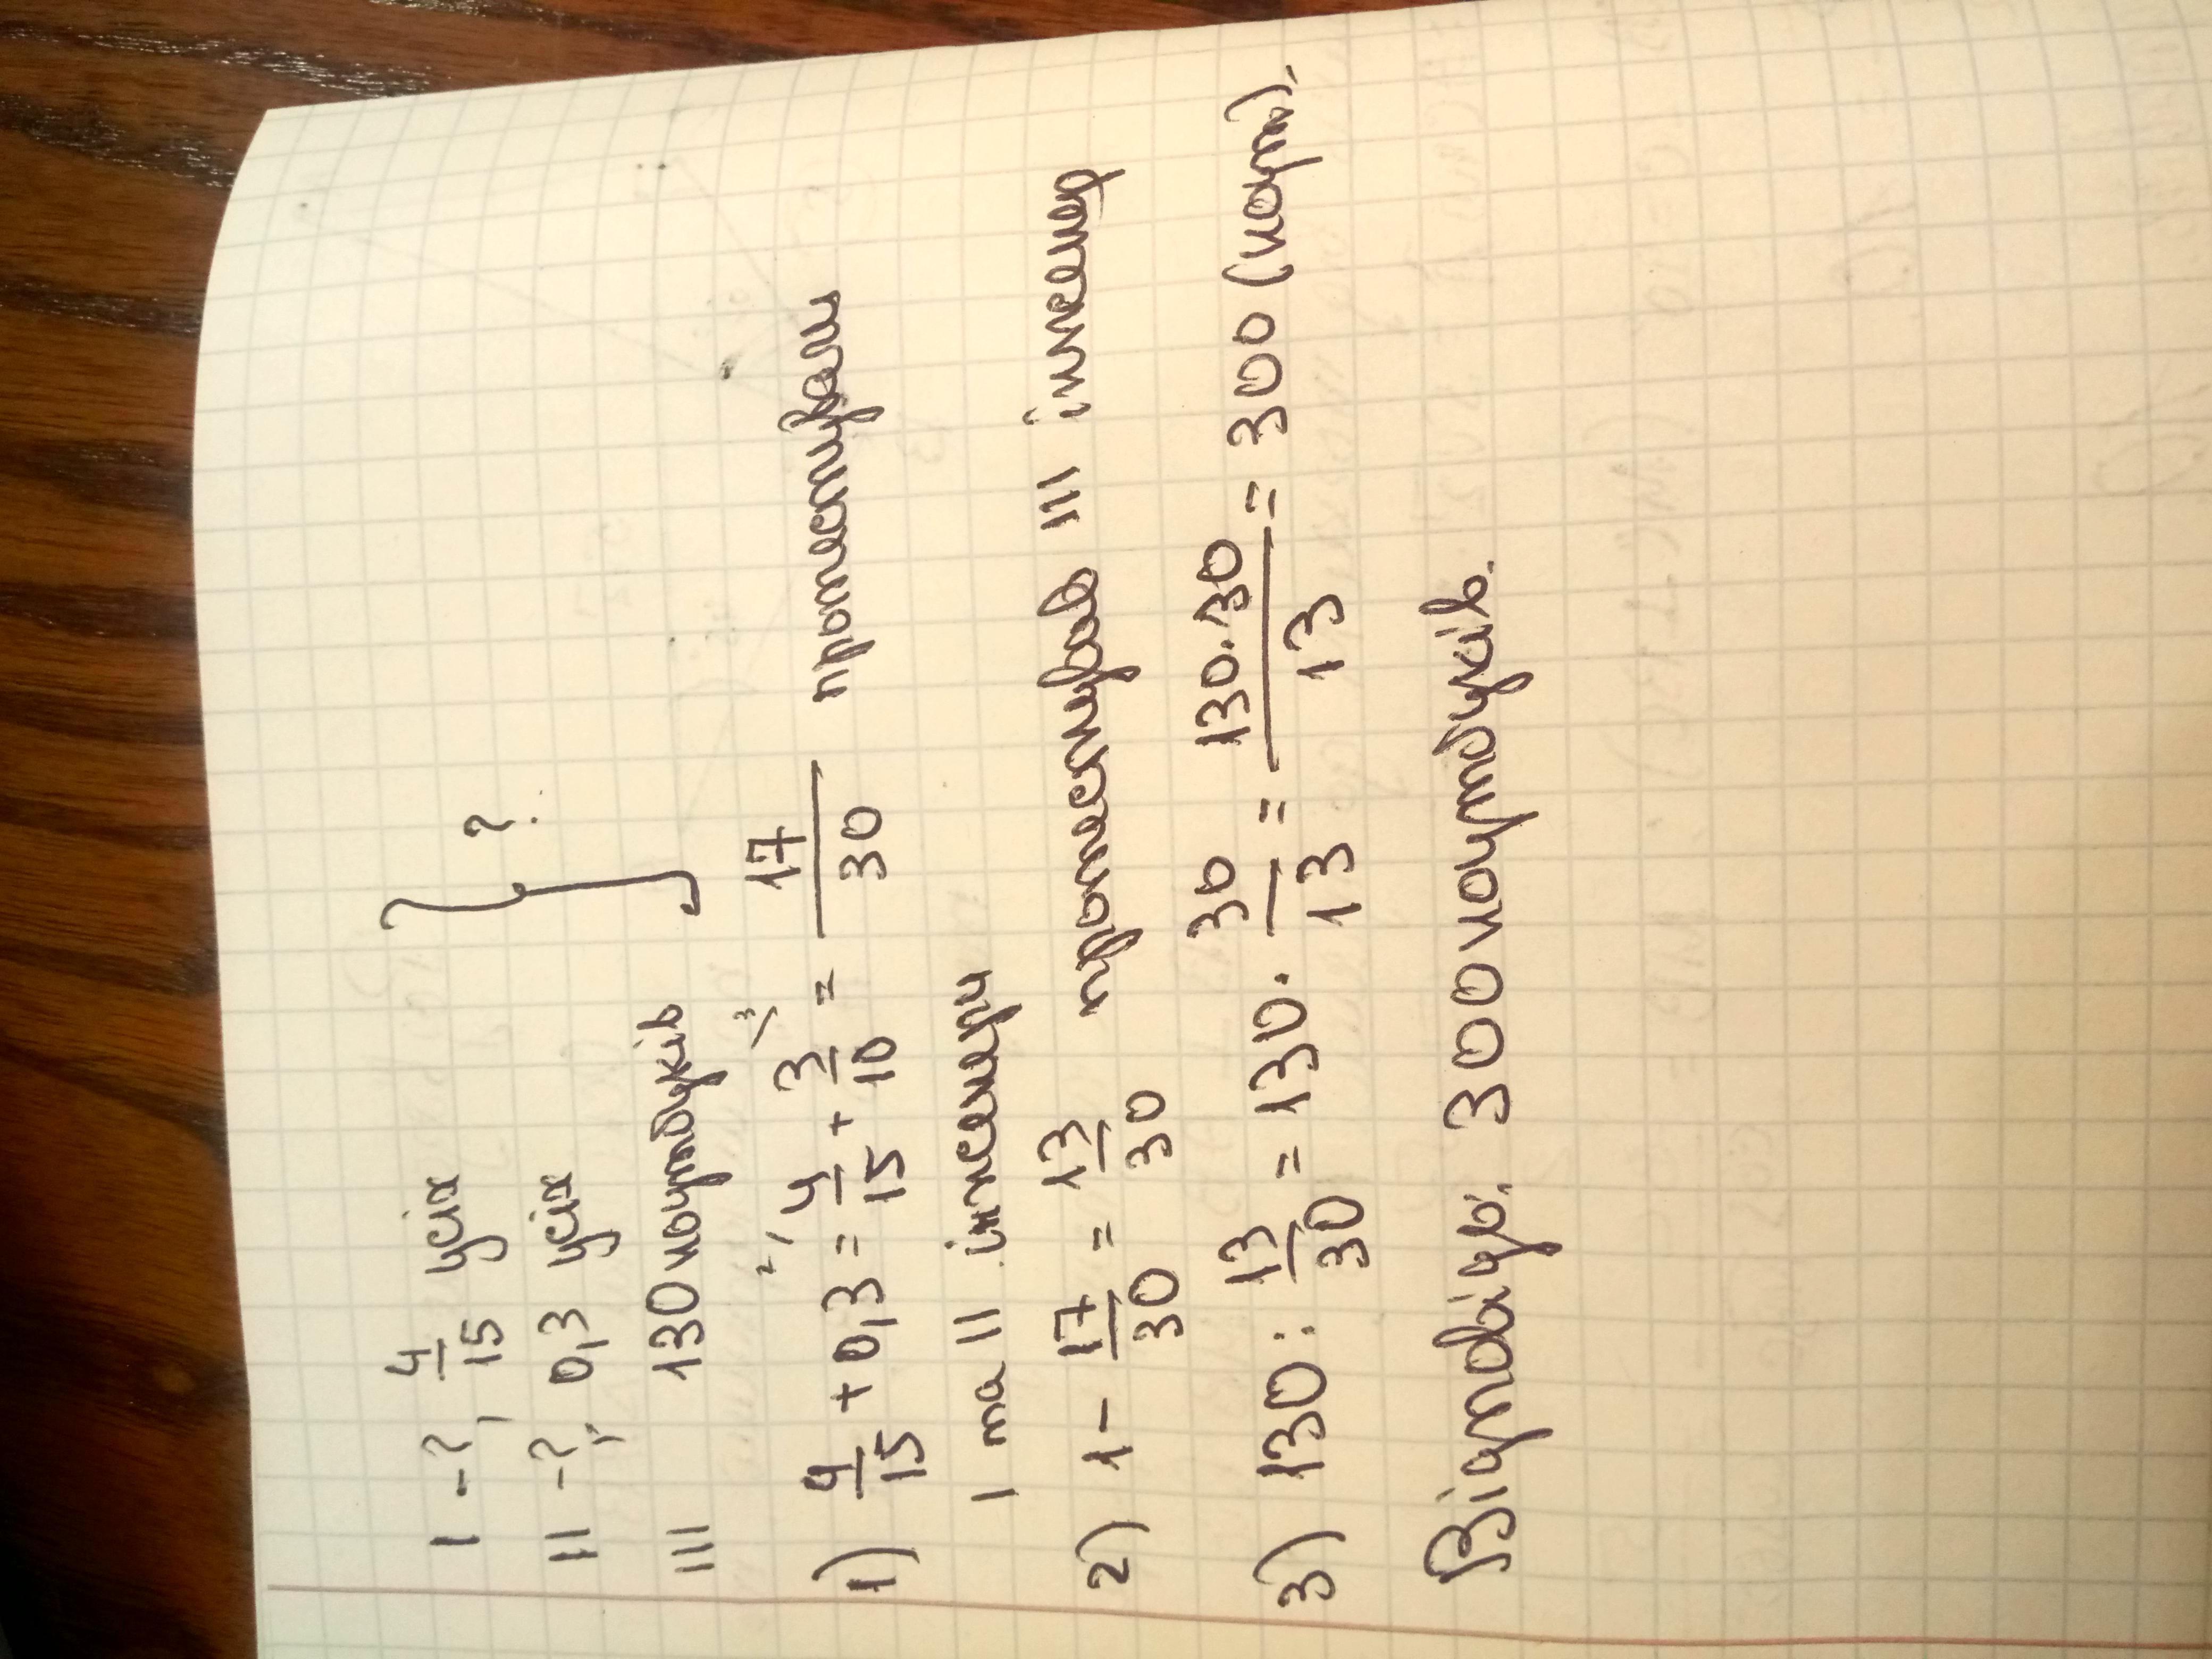 I - ?, 4/15 усіх
II - ?, 0,3 усіх } ?
III 130 ноутбуків
1) 4/15 + 0,3 = 2/ 4/15 + 3/10 3/ = 17/30 протестували
I та II інженери
2) 1 - 17/30 = 13/30 протестував III інженер
3) 130 : 13/30 = 130 · 30/13 = 130·30/13 = 300 (ноутб).
Відповідь. 300 ноутбуків.